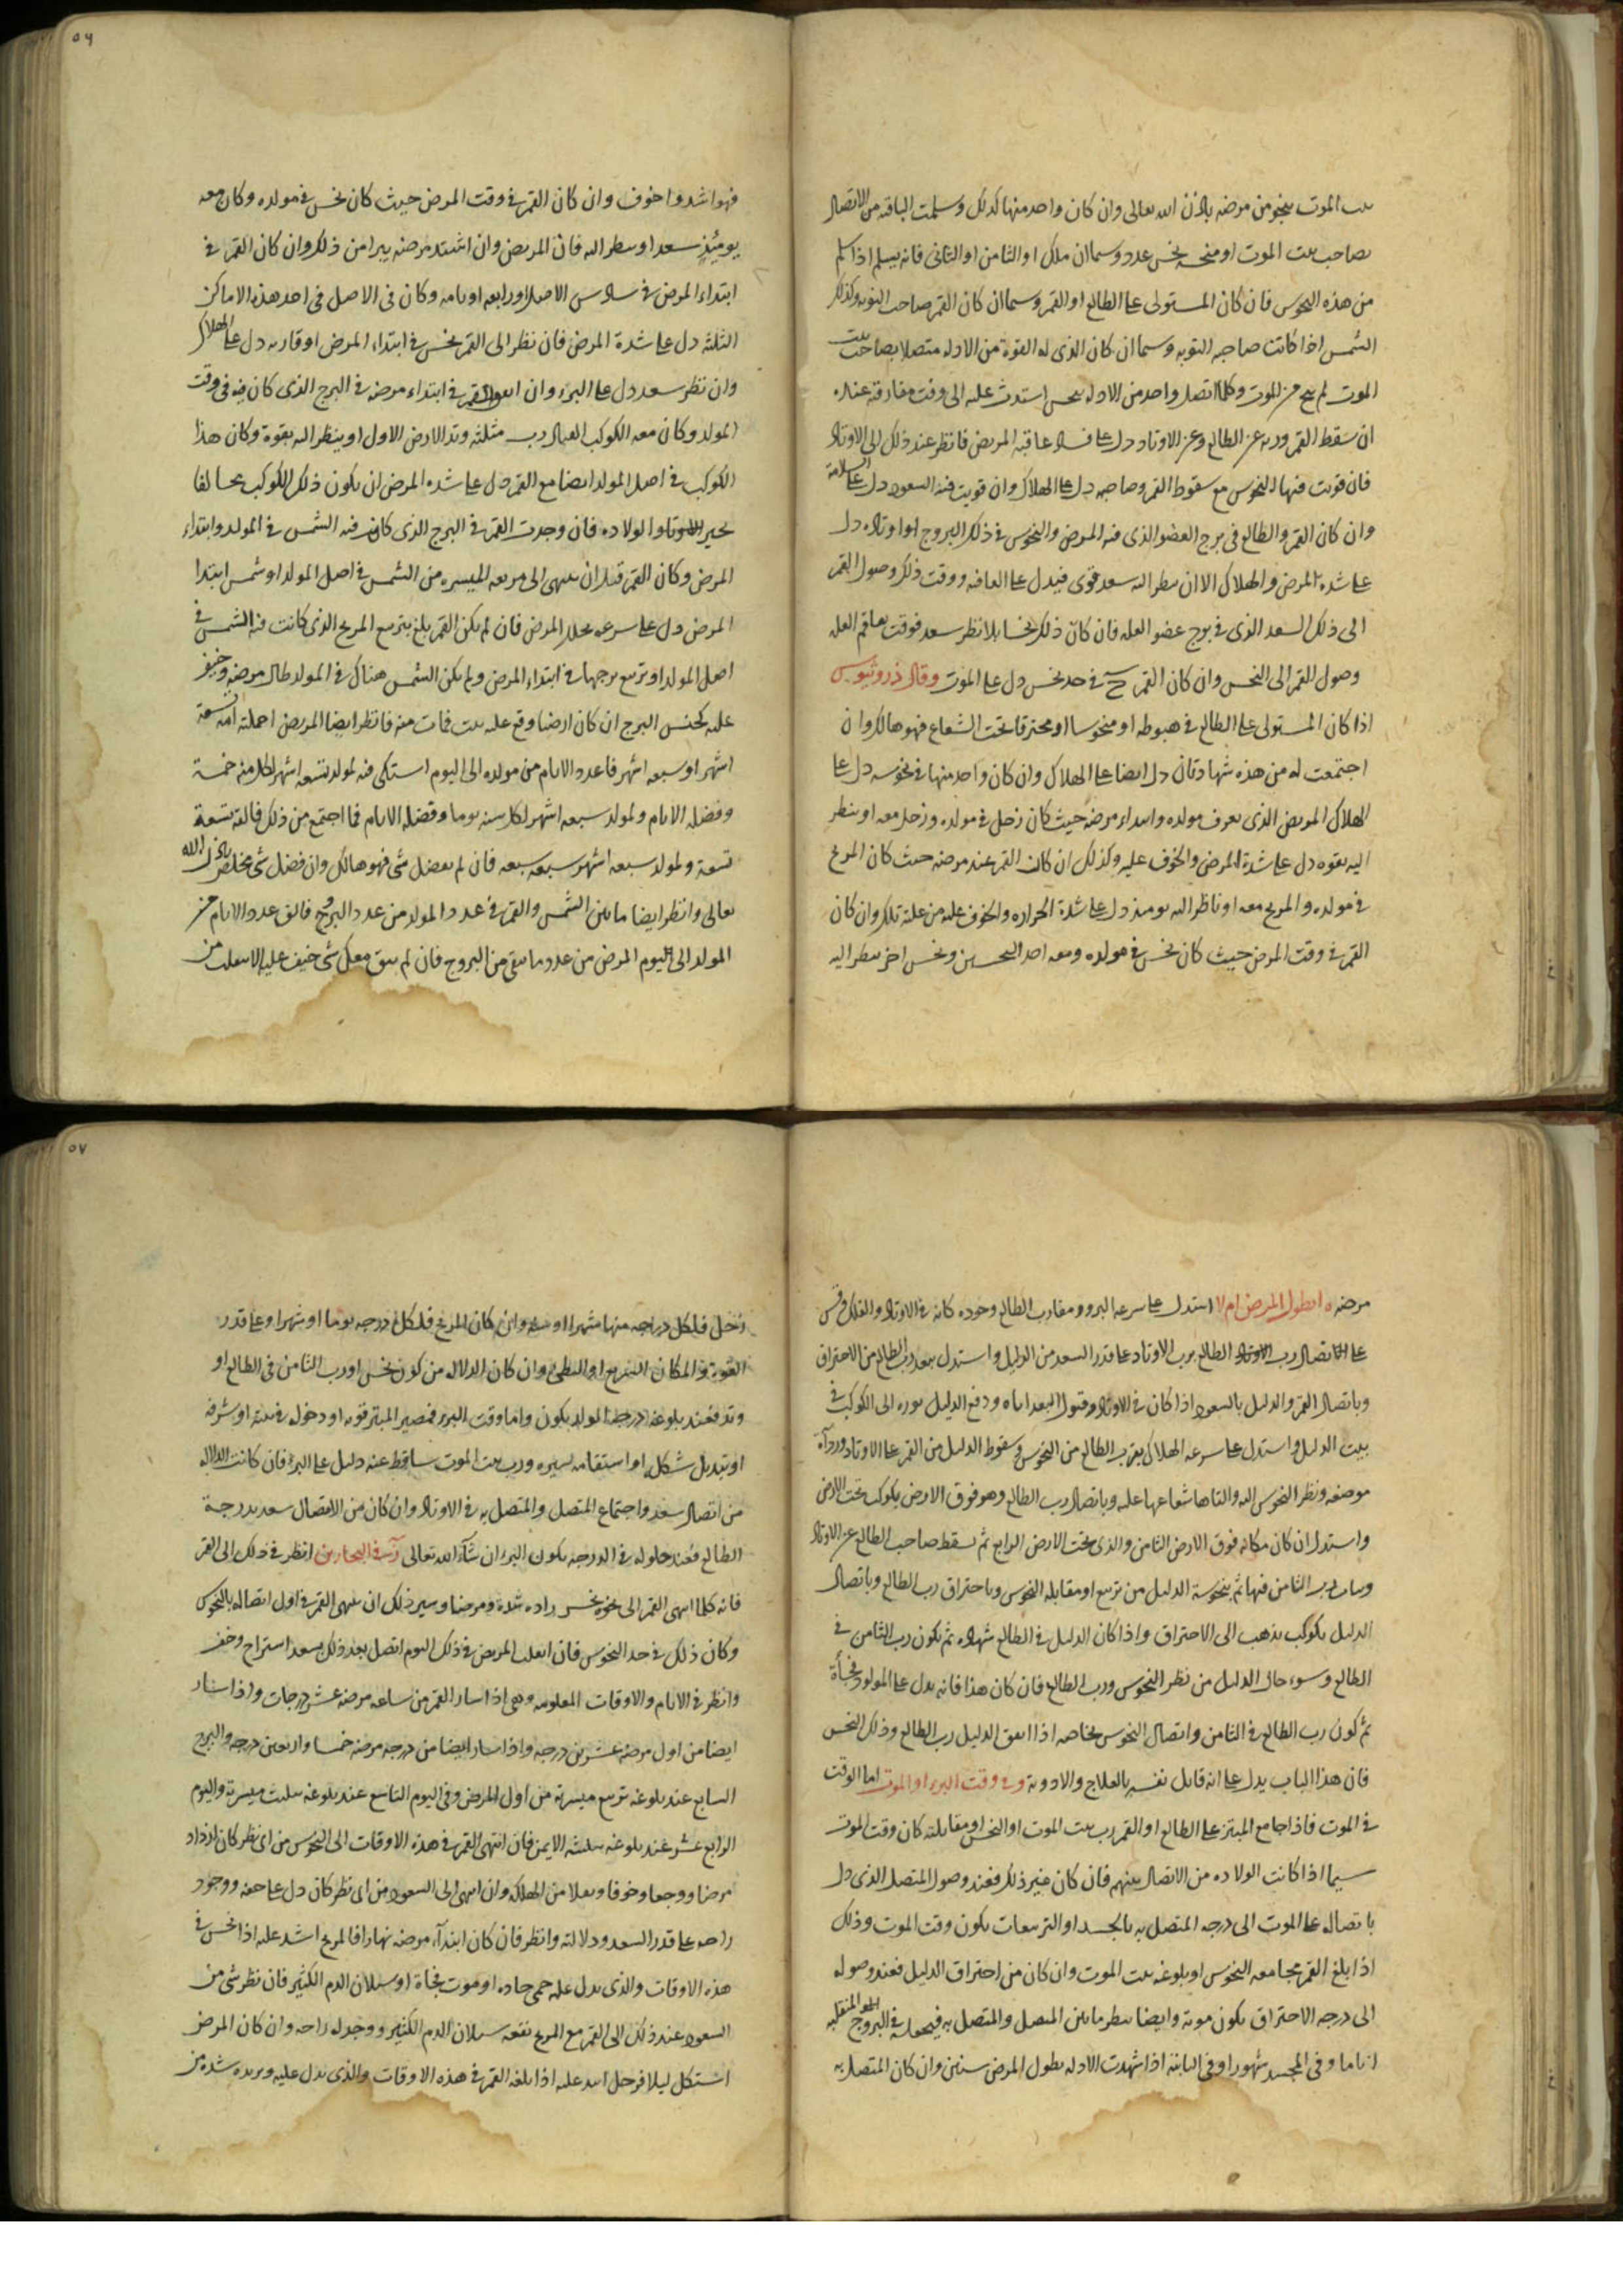 بيت الموت ينجو من مرضه باذن الله تعالى وان كان واحد منها كذلك وسلمت الباقية من الاتصال
بصاحب بيت الموت او منحسة بنحس عدد وسيما ان ملك او الثامن او الثاني فانه يسلم اذا سلم
من هذه النحوس فان كان المستولى على الطالع او القمر وسيما ان كان القمر صاحب النوبه وكذلك
الشمس اذا كانت صاحبه النوبه وسيما ان كان الذى له القوة من الادله متصلا بصاحب بيت
الموت لم ينج من الموت وكلما اتصل واحد من الادله بنحس اشتدت عليه الى وقت مفارقته عنه
ان سقط القمر وربه عن الطالع وعن الاوتاد دل على فساد عاقبه المريض فانظر عند ذلك الى الاوتاد
فان قويت فيها النحوس مع سقوط القمر وصاحبه دل على الهلاك وان قويت فيه السعود دل على السلامة
وان كان القمر والطالع فى برج العضو الذى فيه المرض والنحوس فى ذلك البروج او اوتاده دل
على شدة المرض والهلاك الا ان ينظر اليه سعد قوى فيدل على العافيه ووقت ذلك وصول القمر
الى ذلك السعد الذى فى برج عضو العله فان كان ذلك نحسا بلا نظر سعد فوقت تفاقم العله
وصول القمر الى النحس وان كان القمر فى حد نحس دل على الموت وقال ذروثيوس
اذا كان المستولى على الطالع فى هبوطه او منحوسا او محترقا تحت الشعاع فهو هالك وان
اجتمعت له من هذه شهادتان دل ايضا على الهلاك وان كان واحد منها فى نحوسه دل على
الهلاك المريض الذى يعرف مولده وابتداء مرضه حيث كان زحل فى مولده وزحل معه او ينظر
اليه بقوه دل على شدة المرض والخوف عليه وكذلك ان كان القمر عند مرضه حيث كان المريخ
فى مولده والمريخ معه او ناظر اليه يومئذ دل على شدة الحراره والخوف عليه من علته تلك وان كان
القمر فى وقت المرض حيث كان نحس فى مولده ومعه احد النحسين ونحس اخر ينظر اليه
٥٦
فهو اشد واخوف وان كان القمر فى وقت المرض حيث كان نحس فى مولده وكان معه
يومئذ سعد او ينظر اليه فان المريض وان اشتد مرضه يبرا من ذلك وان كان القمر فى
ابتداء المرض فى سادس الاصل او رابعه او ثامنه وكان فى الاصل فى احد هذه الاماكن
الثلثه دل على شدة المرض فان نظر الى القمر نحس فى ابتداء المرض او قارنه دل على الهلاك
وان نظر سعد دل على البرء وان القمر فى ابتداء مرضه فى البرج الذى كان فيه فى وقت
المولد وكان معه الكوكب رب مثلثة وتد الارض الاول او ينظر اليه بقوة وكان هذا
الكوكب فى اصل المولد ايضا مع القمر دل على شده المرض ان يكون ذلك الكوكب مخالفا
لحيز الولاده فان وجدت القمر فى البرج الذى كانت فيه الشمس فى المولد وابتداء
المرض وكان القمر قبل ان ينتهى الى تربيعه الميسره من الشمس فى اصل المولد او شمس ابتدا
المرض دل على سرعه تحلل المرض فان لم يكن القمر بلغ تربيع البرج الذى كانت فيه الشمس فى
اصل المولد او تربيع برجها فى ابتداء المرض ولم يكن الشمس هناك فى المولد طال مرضه وخيف
عليه كجنس البرج ان كان ارضيا وقع عليه بيت فمات منه فانظر ايضا المريض احملته امه تسعة
اشهر او سبعه اشهر فاعدد الايام من مولده الى اليوم اشتكى فيه لمولد تسعه اشهر لكل سنه خمسة
وفضله الايام ولمولد سبعه اشهر لكل سنه يوما وفضله الايام فما اجتمع من ذلك فالقه تسعة
تسعة ولمولد سبعه اشهر سبعه سبعه فان لم يفضل شى فهو هالك وان فضل شى تخلص باذن الله
تعالى وانظر ايضا ما بين الشمس والقمر فى عدد المولد من عدد البروج فالق عدد الايام من
المولد الى اليوم المرض من عدد ما بقى من البروج فان لم يبق معك شى خيف عليه الا ينفلت من
مرضه ايطول المرض ام لا استدل على سرعه البرو ومقارب الطالع وجوده مكانه فى الاوتاد والفلك وقس
على اتصال رب الطالع برب الاوتاد على قدر السعد من الدليل واستدل ببعد رب الطالع من الاحتراق
وباتصال القمر والدليل بالسعود اذا كان فى الاوتاد وقبول السعد اياه ودفع الدليل نوره الى الكوكب فى
بيت الدليل واستدل على سرعه الهلاك بقرب الطالع من النحوس وسقوط الدليل من القمر على الاوتاد ورداءة
موضعه ونظر النحوس اليه والقاها شعاعها عليه وباتصال رب الطالع وهو فوق الارض بكوكب تحت الارض
واستدل ان كان مكانه فوق الارض الثامن والذى تحت الارض الرابع ثم بسقط صاحب الطالع عن الاوتاد
وبيان رب الثامن فيها ثم بنحوسة الدليل من تربيع او مقابله النحوس وباحتراق رب الطالع وباتصال
الدليل بكوكب يذهب الى الاحتراق واذا كان الدليل فى الطالع شهاده ثم يكون رب الثامن فى
الطالع وسوء حال الدليل من نظر النحوس ورب الطالع فان كان هذا فانه يدل على المولود فجأة
ثم كون رب الطالع فى الثامن واتصال النحوس بخاصه اذا اتفق الدليل رب الطالع وذلك النحس
فان هذا الباب يدل على انه قاتل نفسه بالعلاج والادوية وفى وقت البرء او الموت اما الوقت
فى الموت فاذا جامع المبتز على الطالع او القمر رب بيت الموت او النحس او مقابلته كان وقت الموت
سيما اذا كانت الولاده من الاتصال بينهم فان كان غير ذلك فعند وصول المتصل الذى دل
باتصاله على الموت الى درجه المتصل به بالجسد او التربيعات يكون وقت الموت وذلك
اذا بلغ القمر مجامعه النحوس او بلوغه بيت الموت وان كان من احتراق الدليل فعند وصوله
الى درجه الاحتراق يكون موته وايضا ينظر ما بين المتصل والمتصل به فيجعله فى البروج المنقلبه
اياما وفى المجسد شهورا وفى الثابته اذا شهدت الادله بطول المرض سنين وان كان المتصل به
٥٧
زحل فلكل درجه منها شهرا او سنه وان كان المريخ فلكل درجه يوما او شهرا وعلى قدر
القوة والمكان السريع او البطى وان كان الدلاله من كون نحس او رب الثامن فى الطالع او
وتد فعند بلوغه درجة المولد يكون واما وقت البرء فمصير المبتز قوته او دخوله فى بيته او شرفه
او تبديل شكله او استقامه لسيره ورب بيت الموت ساقط عنه دليل على البرء فان كانت الدلاله
من اتصال سعد واجتماع المتصل والمتصل به فى الاوتاد وان كان من الاتصال سعد بدرجة
الطالع فعند حلوله فى الدرجه يكون البرء ان شاء الله تعالى فى البحارين انظر فى ذلك الى القمر
فانه كلما انتهى القمر الى نحس زاده شدة ومرضا وسير ذلك ان ينتهى القمر فى اول اتصاله بالنحوس
وكان ذلك فى حد النحوس فان انفلت المريض فى ذلك اليوم اتصل بعد ذلك بسعد استراح وخف
وانظر فى الايام والاوقات المعلومه وهى اذا سار القمر من ساعه مرضه عشر درجات واذا سار
ايضا من اول مرضه عشرين درجه واذا سار ايضا من درجه مرضه خمسا واربعين درجه والبرج
السابع عند بلوغه تربيع ميسرته من اول المرض وفى اليوم التاسع عند بلوغه تثليث ميسرته واليوم
الرابع عشر عند بلوغه تثليثه الايمن فان انتهى القمر فى هذه الاوقات الى النحوس من اى نظر كان ازداد
مرضا ووجعا وخوفا وبعلا من الهلكه وان انتهى الى السعود من اى نظر كان دل على خفه ووجود
راحه على قدر السعد ودلالته وانظر فان كان ابتداء مرضه نهارا فالمريخ اشد عليه اذا نحس فى
هذه الاوقات والذى يدل عليه حمى حاده او موت فجاة او سيلان الدم الكثير فان نظر شى من
السعود عند ذلك الى القمر مع المريخ نفعه سيلان الدم الكثير ووجد له راحه وان كان المرض
اشتكى ليلا فزحل اشد عليه اذا بلغه القمر فى هذه الاوقات والذى يدل عليه وبرده شده من